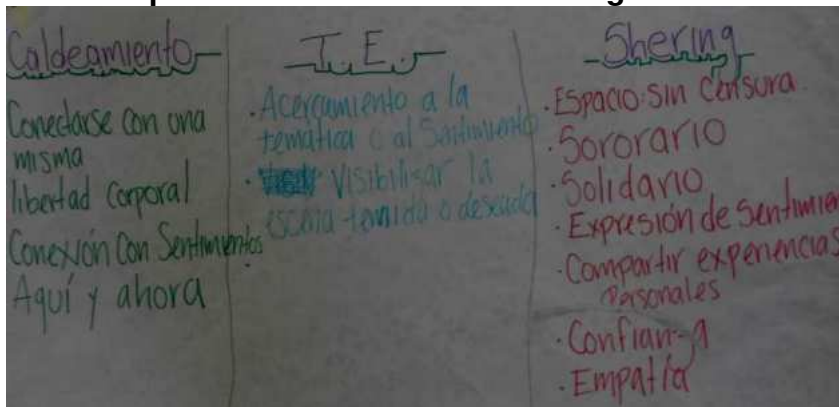 Caldeamiento
Conectarse con una
misma
libertad corporal
Conexión Con Sentimientos
Aquí y ahora
T.E.
· Acercamiento a la
temática o al Sentimiento
· Visibilisar la
escena temida o deseada
Shering
· Espacio sin censura.
· Sororario
· Solidario
· Expresión de Sentimien
· Compartir experiencias
Personales
· Confianza
· Empatía